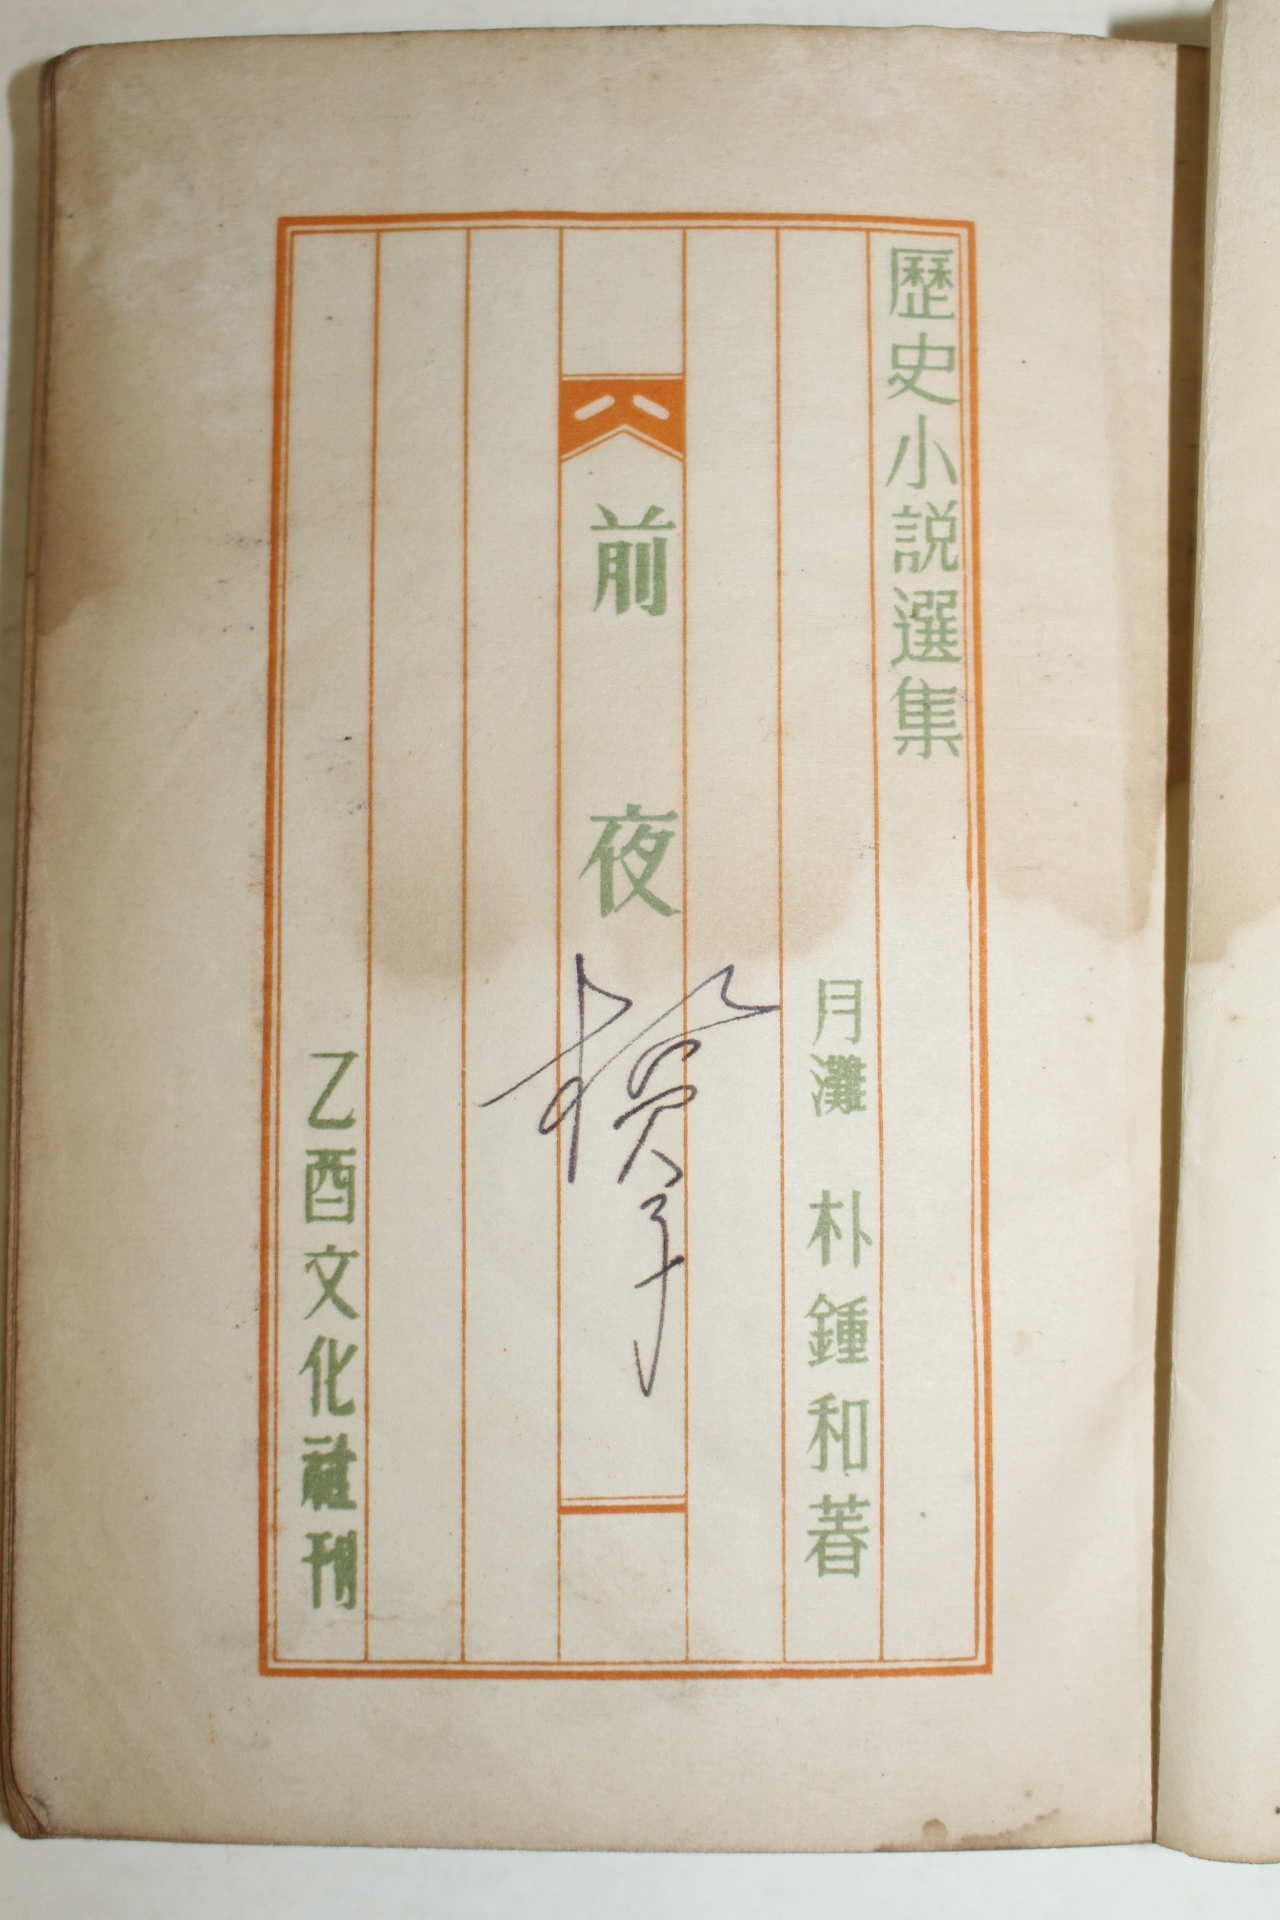 歷史小說選集
月灘 朴鍾和著
前夜
乙酉文化社刊